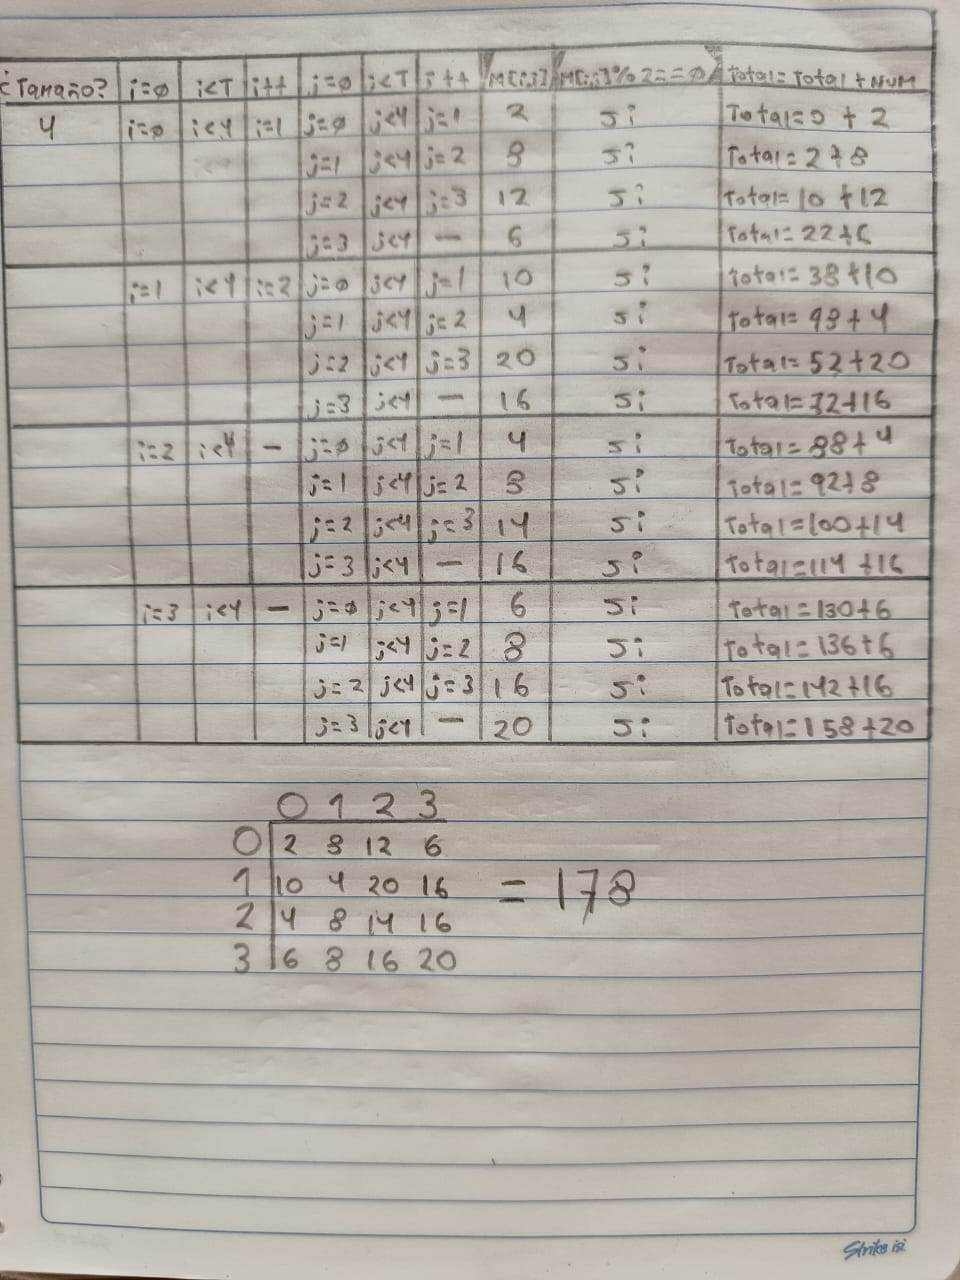 ¿Tamaño? i=0 i<T i++ j=0 j<T j++ M[i,j] M[i,j]%2==0 Total=Total+NUM
4 i=0 i<4 i=1 j=0 j<4 j=1 2 Si Total=0+2
j=1 j<4 j=2 8 Si Total=2+8
j=2 j<4 j=3 12 Si Total=10+12
j=3 j<4 — 6 Si Total=22+6
i=1 i<4 i=2 j=0 j<4 j=1 10 Si Total=38+10
j=1 j<4 j=2 4 Si Total=48+4
j=2 j<4 j=3 20 Si Total=52+20
j=3 j<4 — 16 Si Total=72+16
i=2 i<4 — j=0 j<4 j=1 4 Si Total=88+4
j=1 j<4 j=2 8 Si Total=92+8
j=2 j<4 j=3 14 Si Total=100+14
j=3 j<4 — 16 Si Total=114+16
i=3 i<4 — j=0 j<4 j=1 6 Si Total=130+6
j=1 j<4 j=2 8 Si Total=136+6
j=2 j<4 j=3 16 Si Total=142+16
j=3 j<4 — 20 Si Total=158+20
0 1 2 3
0 2 8 12 6
1 10 4 20 16 = 178
2 4 8 14 16
3 6 8 16 20